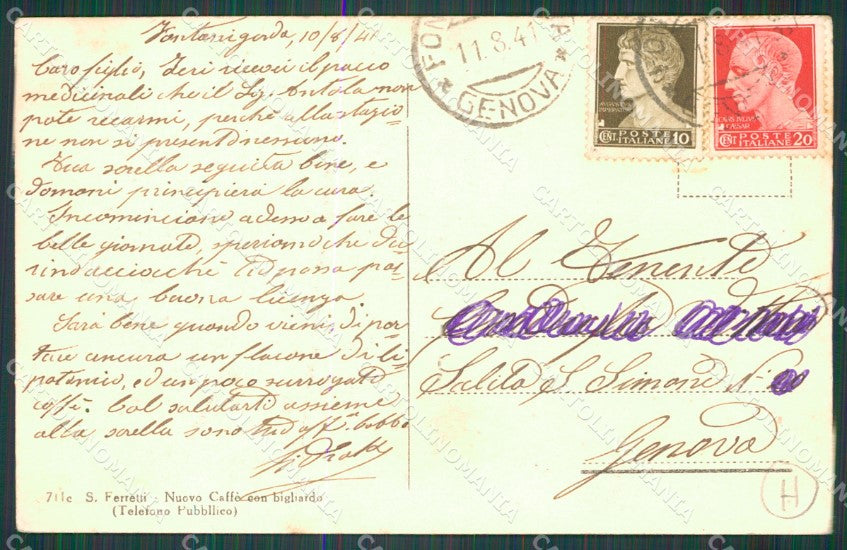 Fontanigorda, 10/8/41
Caro figlio, Ieri ricevei il pacco
medicinali che il Sig. Antola non
pote recarmi, perchè alla stazio-
ne non si presentò nessuno.
Tua sorella seguita bene, e
domani principierà la cura.
Incominciano adesso a fare le
belle giornate, speriamo che du-
rino acciocchè tu possa pas-
sare una buona licenza.
Sarà bene quando vieni, di por-
tare ancora un flacone di
ed un poco surrogato
caffè. Col salutarti assieme
alla sorella sono tuo aff. babbo
11.8.41
GENOVA
AUGUSTVS
CENT. POSTE ITALIANE 10
CENT. POSTE ITALIANE 20
Al Tenente
Salita S. Simone N.
Genova
711c S. Ferretti - Nuovo Caffè con bigliardo
(Telefono Pubblico)
H
CARTOLINOMANIA